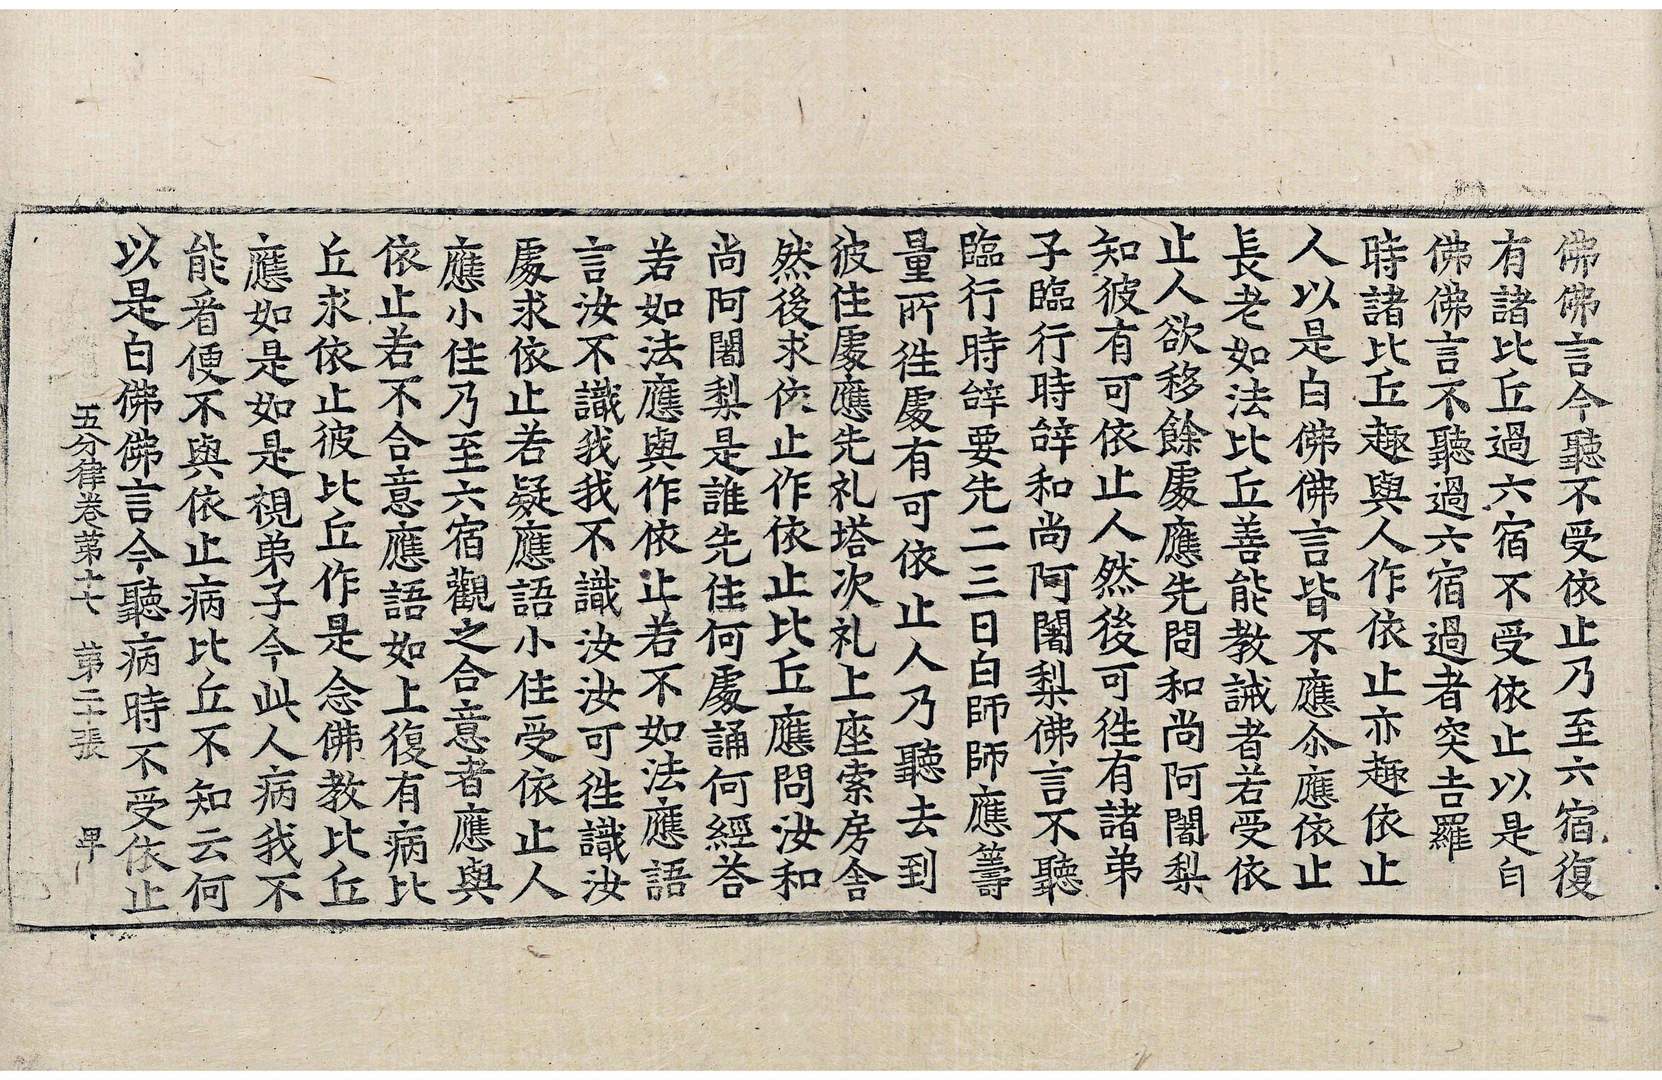 佛佛言今聽不受依止乃至六宿復
有諸比丘過六宿不受依止以是白
佛佛言不聽過六宿過者突吉羅
時諸比丘趣與人作依止亦趣依止
人以是白佛佛言皆不應尒應依止
長老如法比丘善能教誡者若受依
止人欲移餘處應先問和尚阿闍梨
知彼有可依止人然後可往有諸弟
子臨行時辝和尚阿闍梨佛言不聽
臨行時辝要先二三日白師師應籌
量所往處有可依止人乃聽去到
彼住處應先礼塔次礼上座索房舍
然後求依止作依止比丘應問汝和
尚阿闍梨是誰先住何處誦何經荅
若如法應與作依止若不如法應語
言汝不識我我不識汝汝可往識汝
處求依止若疑應語小住受依止人
應小住乃至六宿觀之合意者應與
依止若不合意應語如上復有病比
丘求依止彼比丘作是念佛教比丘
應如是如是視弟子今此人病我不
能看便不與依止病比丘不知云何
以是白佛佛言今聽病時不受依止
五分律卷第十七 第二十張 畢